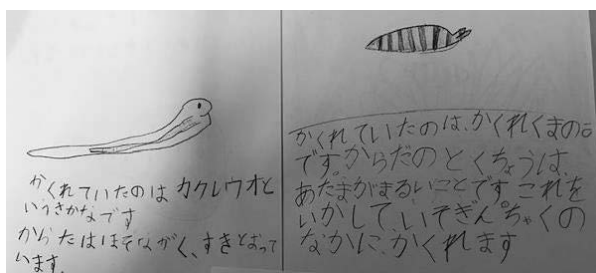 かくれていたのは カクレウオと
いうさかなです
からたはほそながく、すきとおって
います。
かくれていたのは、かくれくまの
です。からだのとくちょうは、
あたまがまるいことです。これを
いかして、いそぎんちゃくの
なかに、かくれます